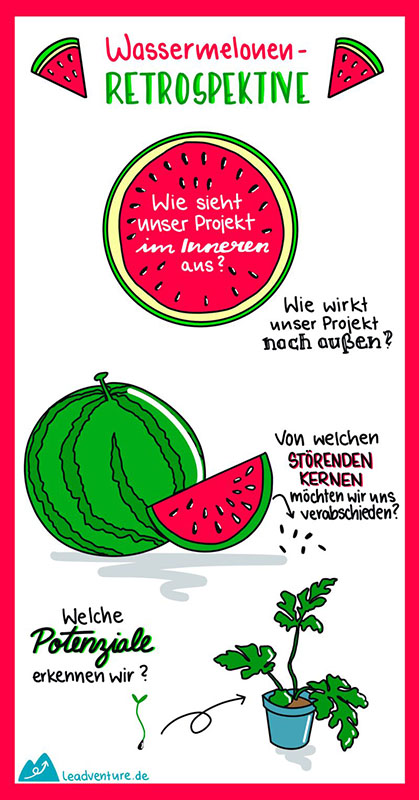 Wassermelonen-
RETROSPEKTIVE
Wie sieht
unser Projekt
im Inneren
aus?
Wie wirkt
unser Projekt
nach außen?
Von welchen
STÖRENDEN
KERNEN
möchten wir uns
verabschieden?
Welche
Potenziale
erkennen wir?
leadventure.de